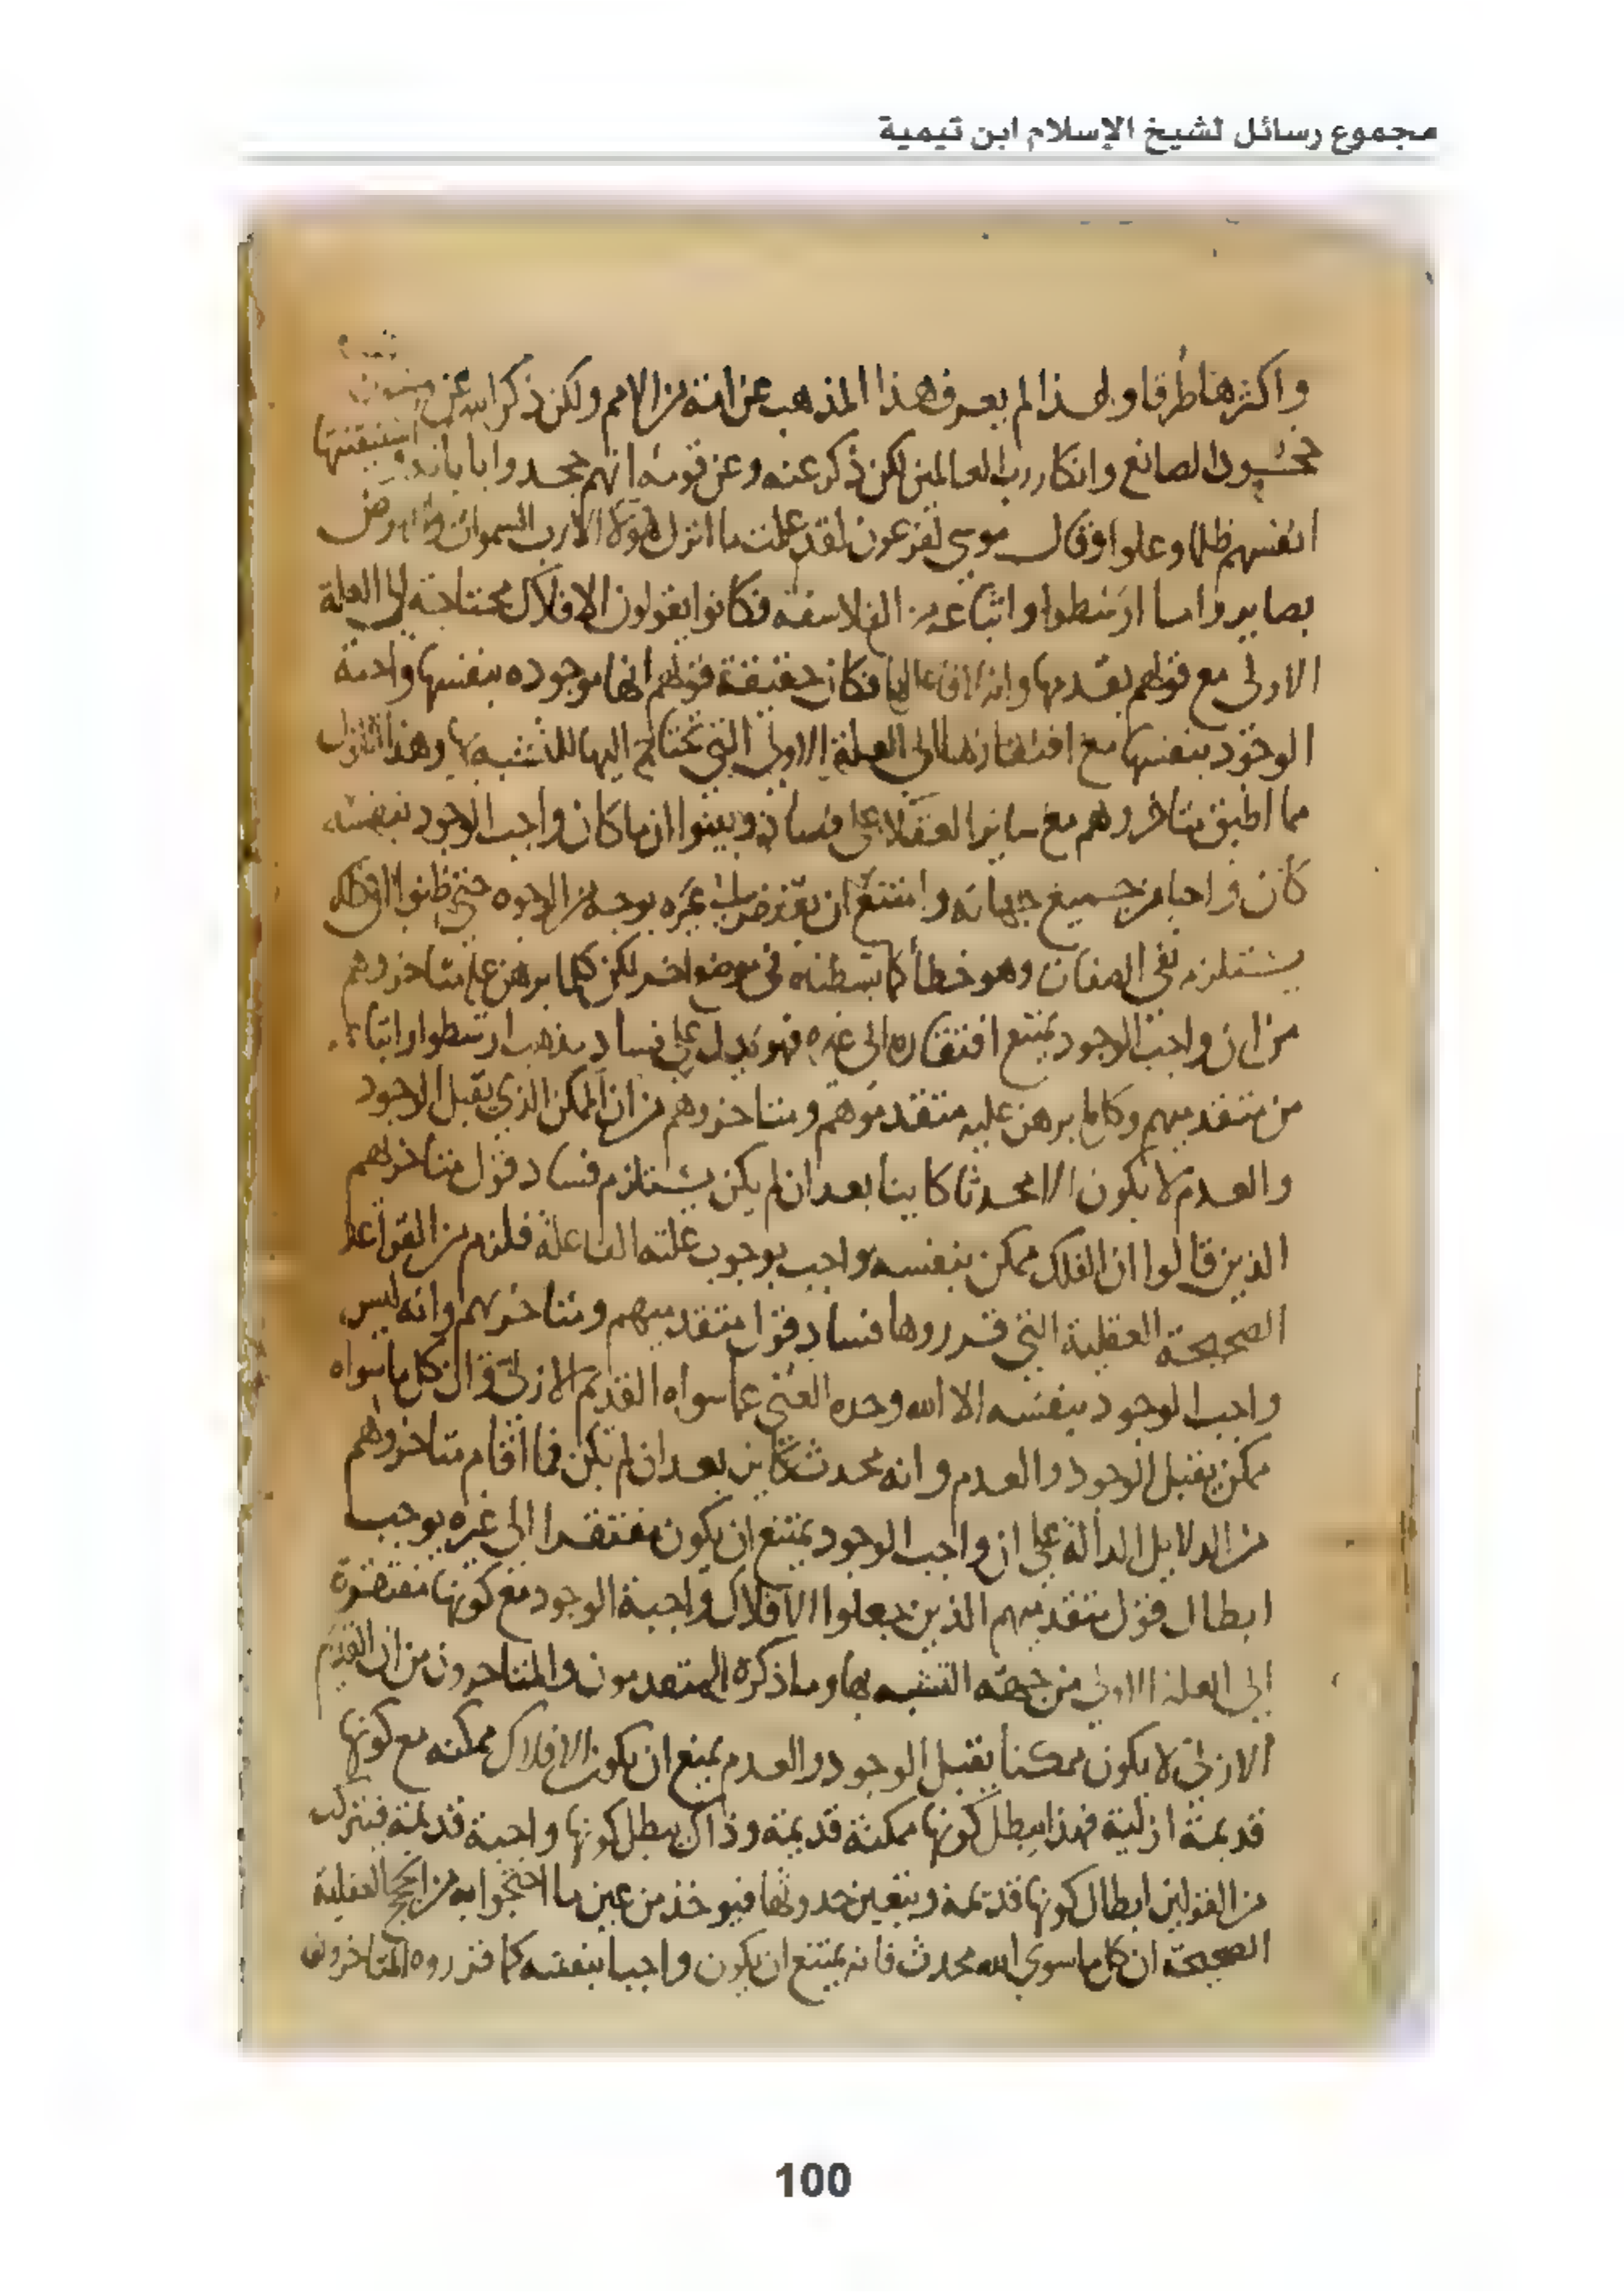 مجموع رسائل لشيخ الإسلام ابن تيمية
واكثرها طرقا ولهذا لم يعرف هذا المذهب عن امة من الامم ولكن ذكر الله عن
جحود الصانع وانكار رب العالمين لكن ذكر عنه وعن قومه انهم جحدوا بايات الله استيقنتها
انفسهم ظلما وعلوا وقال موسى لفرعون لقد علمت ما انزل هؤلاء الا رب السموات والارض
بصاير واما ارسطوا واتباعه من الفلاسفة فكانوا يقولون الافلاك محتاجة الى العلة
الاولى مع قولهم بقدمها وانه لا فاعل لها فكان حقيقة قولهم انها موجوده بنفسها واجبة
الوجود بنفسها مع افتقارها الى العلة الاولى التي تحتاج اليها للتشبه بها وهذا القول
مما اطبق متاخروهم مع ساير العقلا على فساده وبينوا ان ما كان واجب الوجود بنفسه
كان واجبا من جميع جهاته وامتنع ان يفتقر الى غيره بوجه من الوجوه حتى ظنوا ان ذلك
يستلزم نفي الصفات وهو خطأ كما بسطته في موضع اخر لكن كلما برهن عليه متاخروهم
من ان واجب الوجود يمتنع افتقاره الى غيره فهو يدل على فساد مذهب ارسطوا واتباعه
من متقدميهم وكلما برهن عليه متقدموهم ومتاخروهم من ان الممكن الذي يقبل الوجود
والعدم لا يكون الا محدثا كاينا بعد ان لم يكن يستلزم فساد قول متاخريهم
الذين قالوا ان الفلك ممكن بنفسه واجب بوجوب علته الفاعلة فلزم من القواعد
الصحيحة العقلية التي قرروها فساد قول متقدميهم ومتاخريهم وانه ليس
واجب الوجود بنفسه الا الله وحده الغني عما سواه القديم الازلي وان كل ما سواه
ممكن يقبل الوجود والعدم وانه محدث كاين بعد ان لم يكن فما اقام متاخروهم
من الدلايل الدالة على ان واجب الوجود يمتنع ان يكون مفتقرا الى غيره يوجب
ابطال قول متقدميهم الذين جعلوا الافلاك واجبة الوجود مع كونها مفتقرة
الى العلة الاولى من جهة التشبه بها وما ذكره المتقدمون والمتاخرون من ان القديم
الازلي لا يكون ممكنا يقبل الوجود والعدم يمنع ان يكون الافلاك ممكنه مع كونها
قديمة ازلية فهذا يبطل كونها ممكنة قديمة وذاك يبطل كونها واجبة قديمة فيتركب
من القولين ابطال كونها قديمة ويتعين حدوثها فيوخذ من عين ما احتجوا به من الحجج العقلية
الصحيحة ان كل ما سوى الله محدث فانه يمتنع ان يكون واجبا بنفسه كما قرروه المتاخرون
100